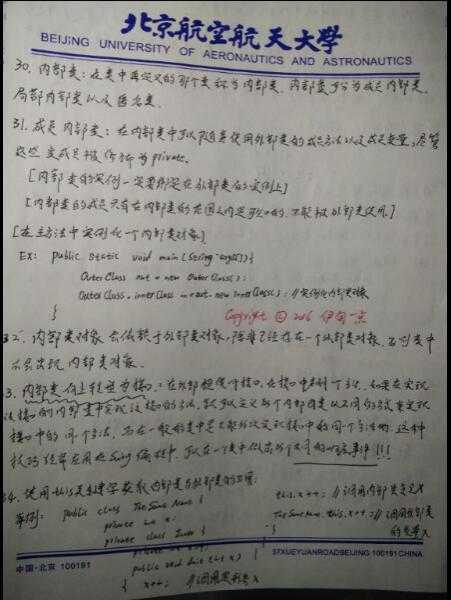 北京航空航天大学
BEIJING UNIVERSITY OF AERONAUTICS AND ASTRONAUTICS
30. 内部类：在类中再定义的那个类称为内部类. 内部类可分为成员内部类,
局部内部类以及匿名类.
31. 成员内部类：在内部类中可以随意使用外部类的成员方法以及成员变量, 尽管
这些类成员被修饰为private.
[内部类的实例一定要绑定在外部类的实例上]
[内部类的成员只有在内部类的范围之内是可知的, 不能被外部类使用.]
[在主方法中实例化一个内部类对象]
Ex: public static void main (String args[]) {
OuterClass out = new OuterClass();
OuterClass.innerClass in = out.new innerClass(); //实例化内部类对象
}
Copyright © 2016 伊甸一点
32. 内部类对象会依赖于外部类对象, 除非已经存在一个外部类对象, 否则类中
不会出现内部类对象.
3. 内部类向上转型为接口：在外部提供一个接口, 在接口中声明一个方法. 如果在实现
该接口的内部类中实现该接口的方法, 就可以定义多个内部类以不同的方式实现
接口中的同一个方法, 而在一般的类中是不能多次实现接口中的同一个方法的, 这种
技巧经常应用在Swing编程中, 可以在一个类中做出多个不同的响应事件!!!
34. 使用this关键字获取内部类与外部类的引用:
举例: public class TheSameName {
private int x;
private class Inner {
private int x = 9;
public void doit(int x) {
x++; //调用形参x
this.x++; //调用内部类变量x
TheSameName.this.x++; //调用外部类
的变量x
}
中国·北京 100191
37XUEYUANROADBEIJING 100191 CHINA